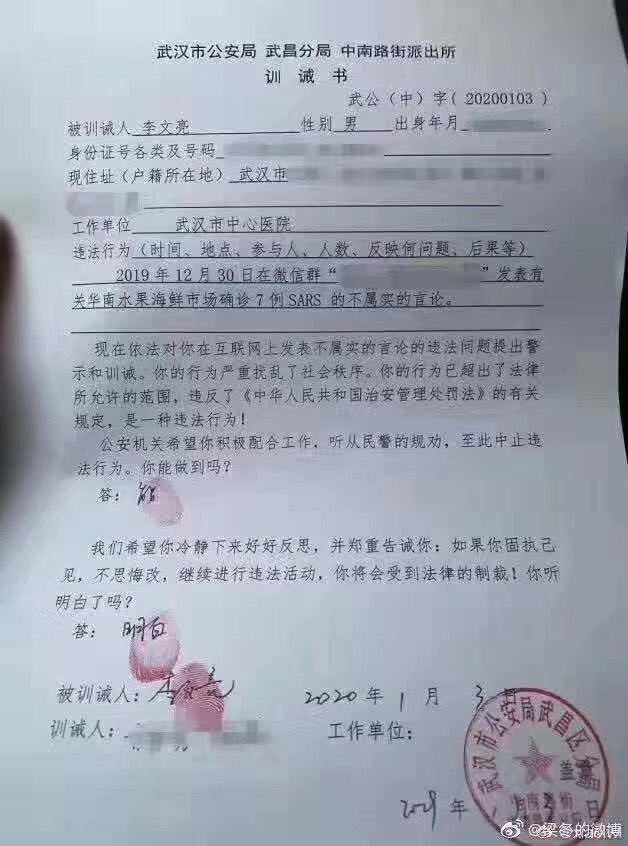 武汉市公安局 武昌分局 中南路街派出所
训 诫 书
武公（中）字（20200103）
被训诫人 李文亮 性别 男 出身年月
身份证号各类及号码
现住址（户籍所在地） 武汉市
工作单位 武汉市中心医院
违法行为（时间、地点、参与人、人数、反映何问题、后果等）
2019年12月30日在微信群“ ”发表有
关华南水果海鲜市场确诊7例SARS 的不属实的言论。
现在依法对你在互联网上发表不属实的言论的违法问题提出警
示和训诫。你的行为严重扰乱了社会秩序。你的行为已超出了法律
所允许的范围，违反了《中华人民共和国治安管理处罚法》的有关
规定，是一种违法行为！
公安机关希望你积极配合工作，听从民警的规劝，至此中止违
法行为。你能做到吗？
答： 能
我们希望你冷静下来好好反思，并郑重告诫你：如果你固执己
见，不思悔改，继续进行违法活动，你将会受到法律的制裁！你听
明白了吗？
答： 明白
被训诫人：李文亮 2020 年 1 月 3 日
训诫人： 工作单位：
武汉市公安局武昌区分局
盖章
年 1 月 3 日
@梁冬的微博